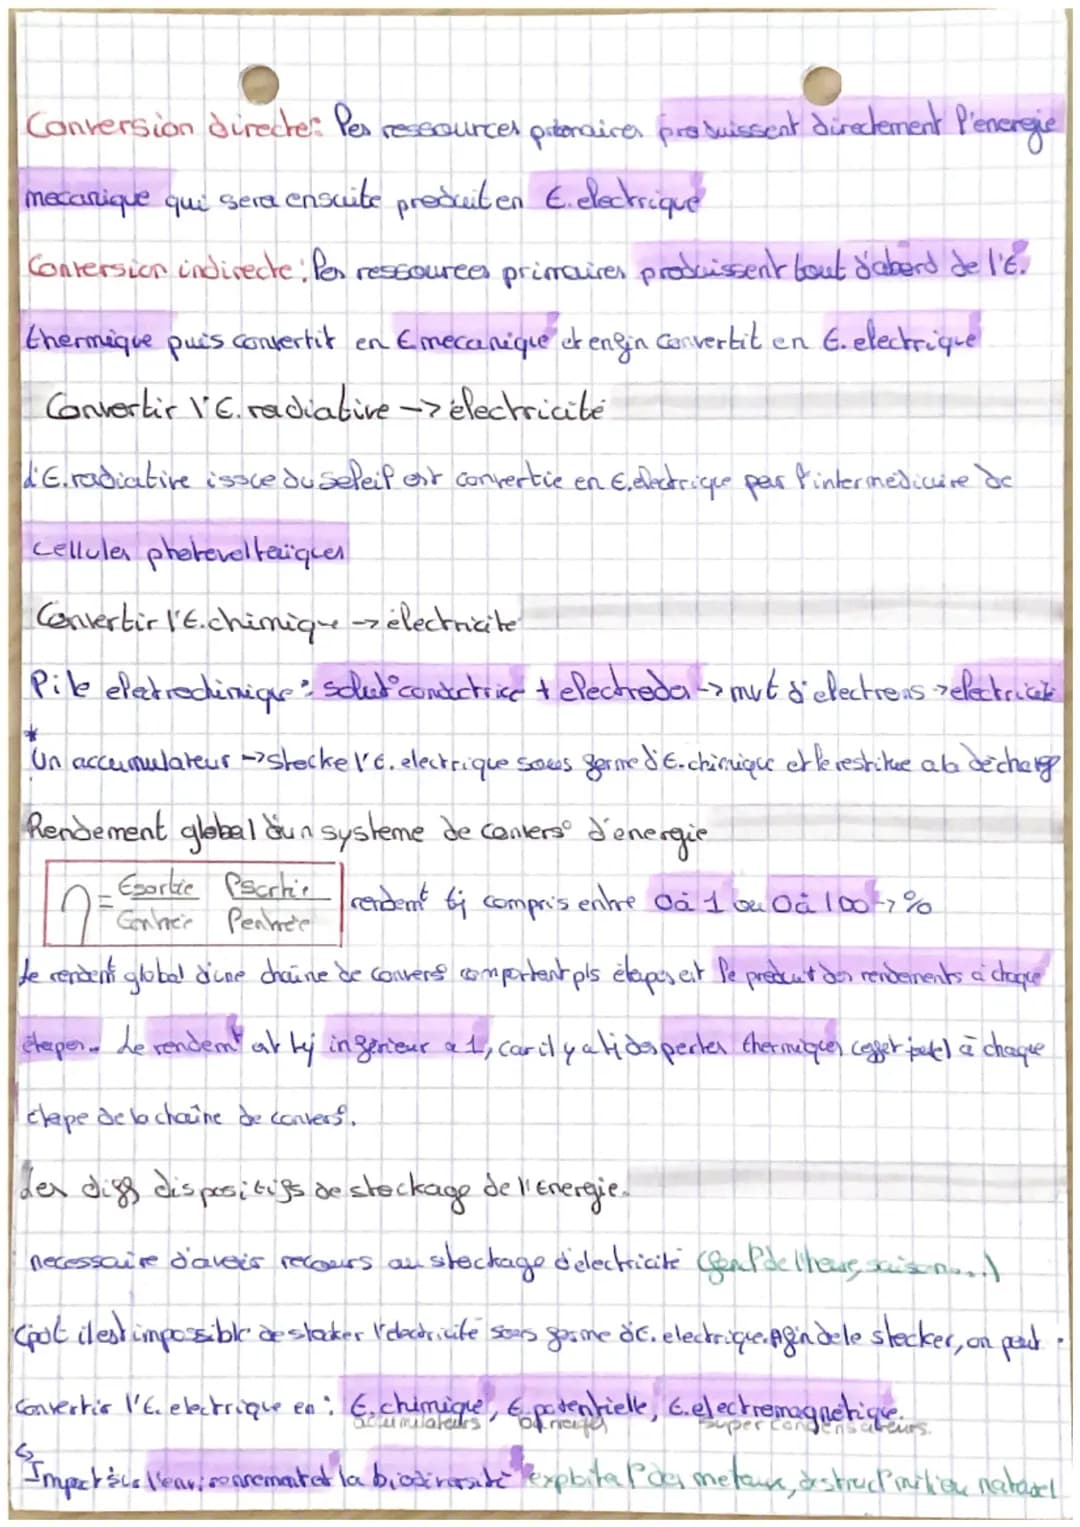 Conversion directe: les ressources primaires produissent directement l'energie
mecanique qui sera ensuite produit en E.electrique
Conversion indirecte: les ressources primaires produissent tout d'abord de l'E.
thermique puis convertit en E mecanique et enfin convertit en E.electrique
Convertir l'E.radiative -> électricité
L'E.radiative issue du soleil est convertie en E.electrique par l'intermédiaire de
cellules photovoltaiques
Convertir l'E.chimique -> électricité
Pile electrochimique: solut° conductrice + electrodes -> mvt d'electrons -> electricité
* Un accumulateur -> stocke l'E.electrique sous forme d'E.chimique et le restitue a la décharge
Rendement global d'un systeme de convers° d'energie
η = Esortie/Eentrée Psortie/Pentrée rendemt tj compris entre 0 à 1 ou 0 à 100 -> %
Le rendemt global d'une chaine de convers° comportant pls étapes est le produit des rendements à chaque
étapes. Le rendemt est tj inferieur a 1, car il y a tj des pertes thermiques (effet joule) à chaque
étape de la chaîne de convers°.
Les diff dispositifs de stockage de l'Energie.
necessaire d'avoir recours au stockage d'electricité ( de l'heure, saison...)
Cpdt il est impossible de stocker l'electricité sous forme d'E.electrique. Afin de le stocker, on peut
convertir l'E.electrique en: E.chimique, E.potentielle, E.electromagnetique.
accumulateurs barrages super condensateurs.
↳ Impact sur l'environnement et la biodiversité exploitat° des metaux, destruct° milieu naturel